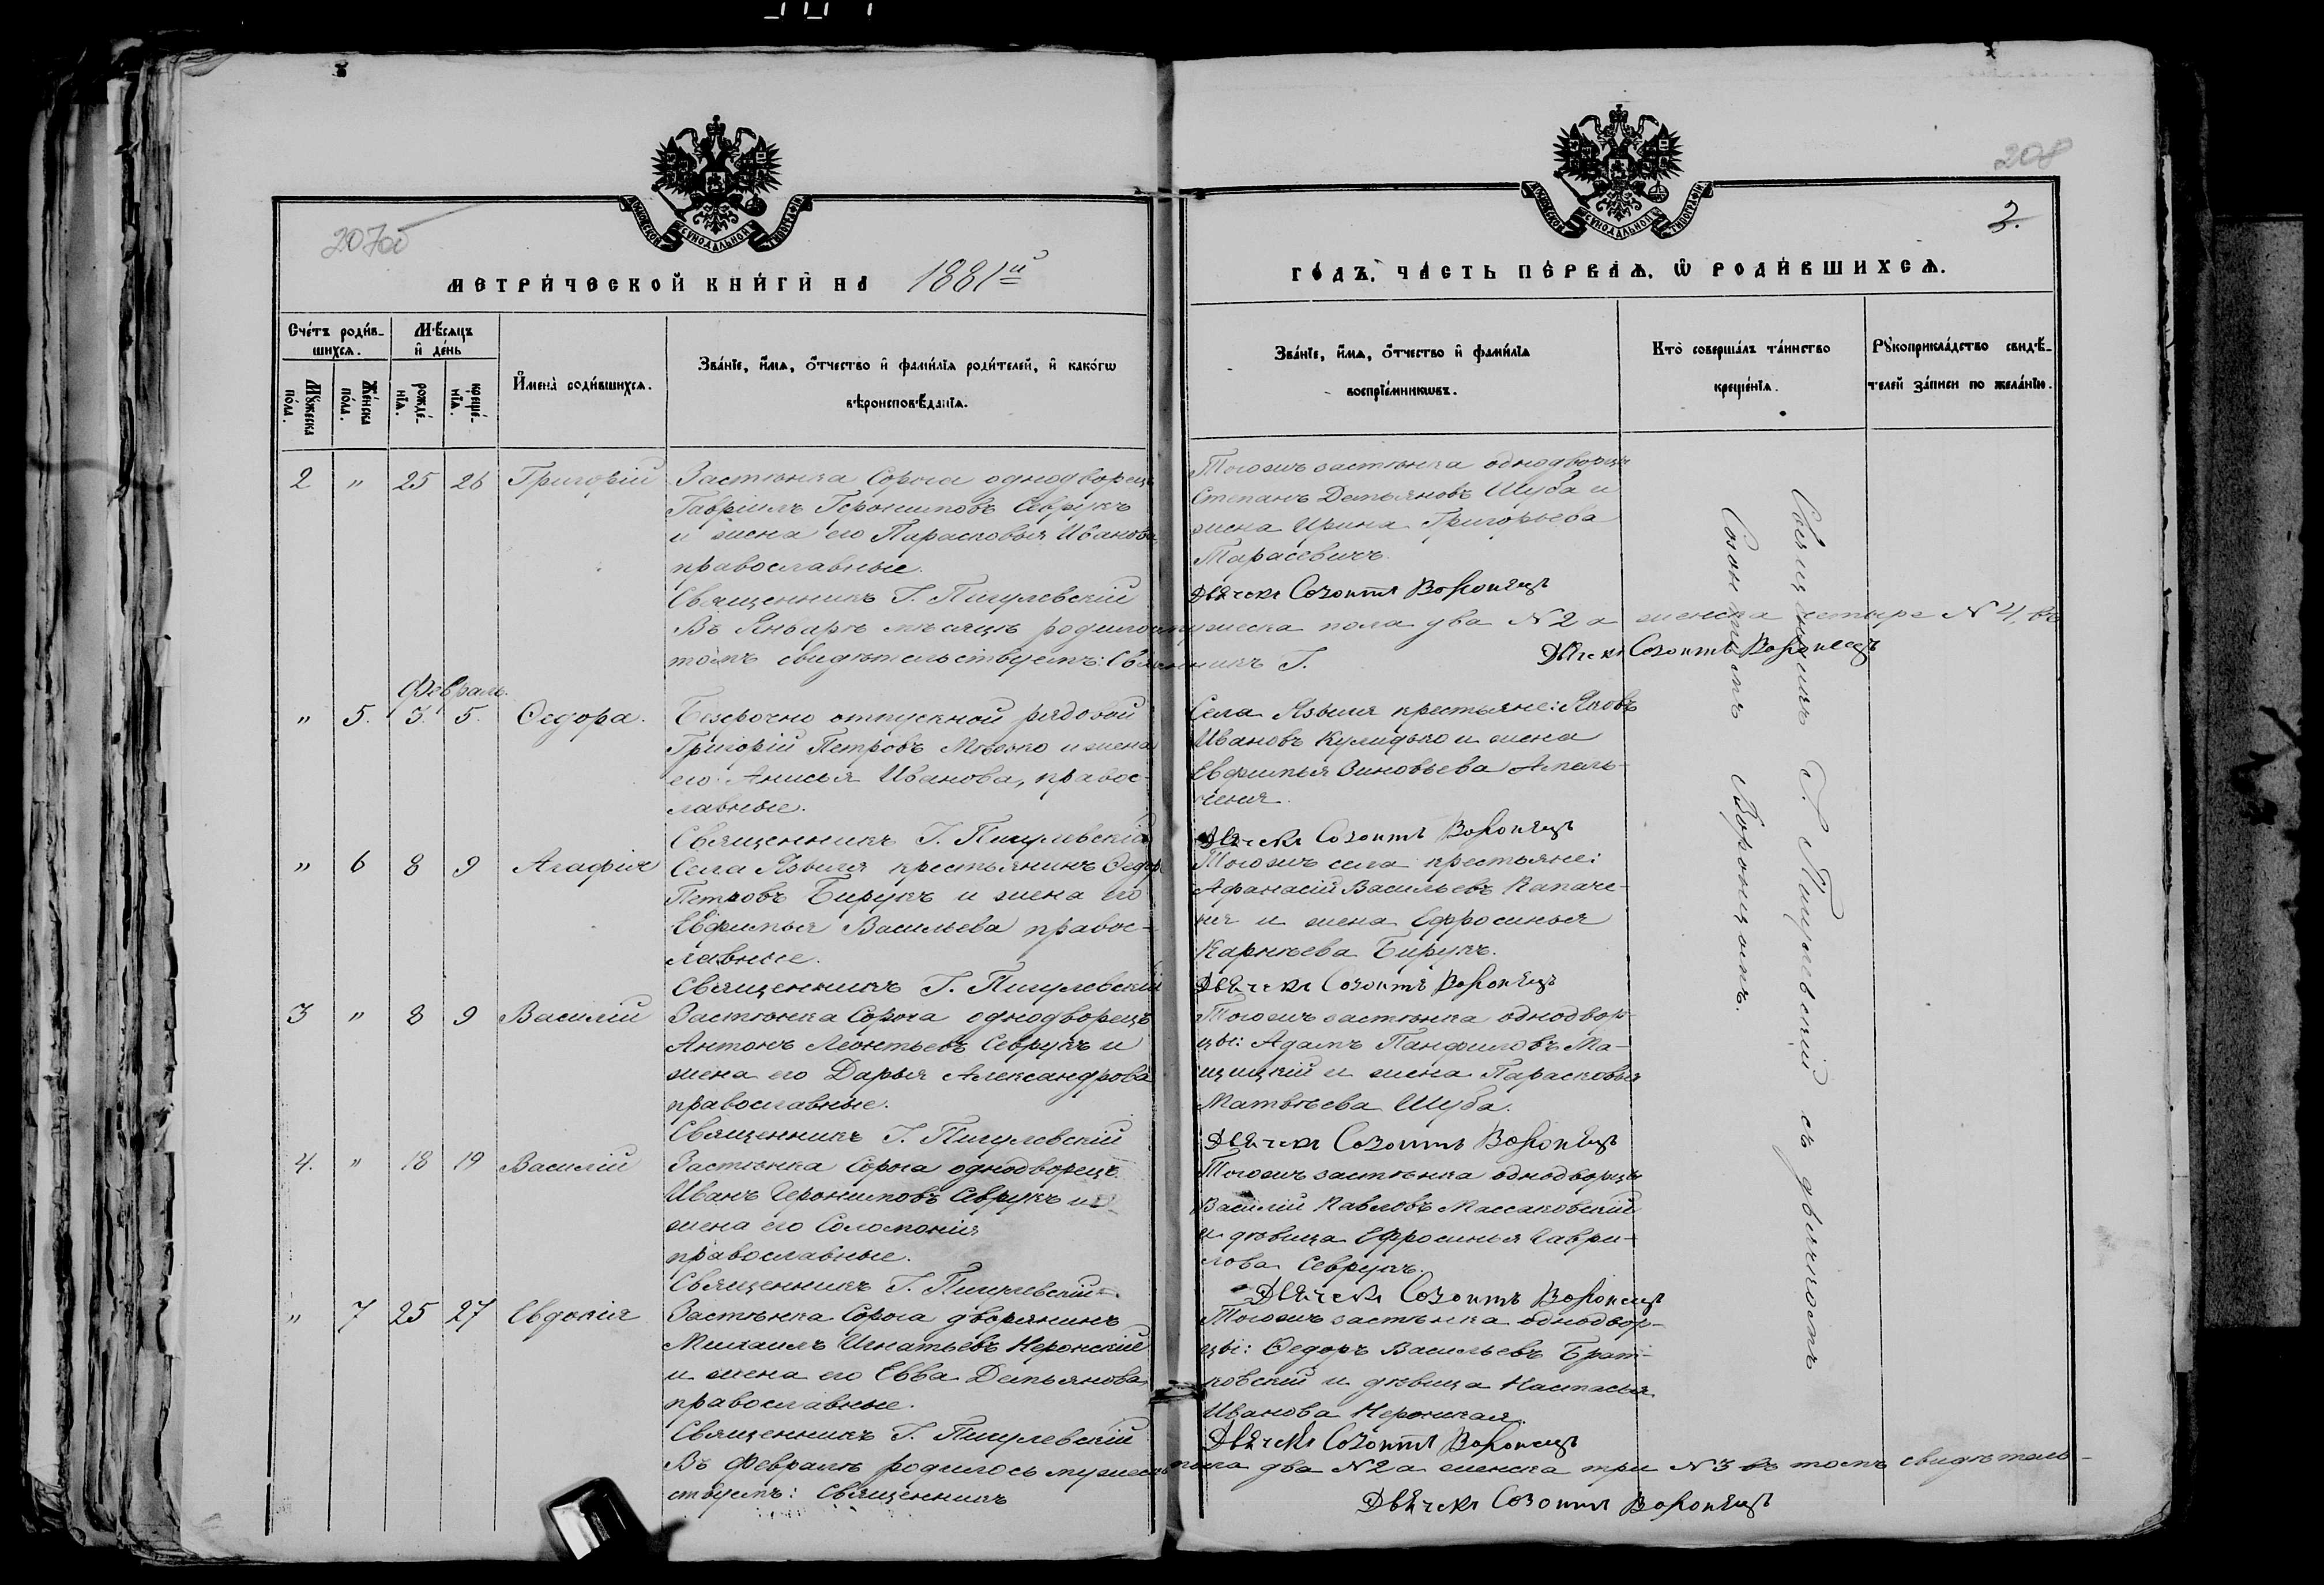 207об
208
2.
МЕТРИ́ЧЕСКОЙ КНИ́ГИ НА 1881й
ГО́ДЪ, ЧА́СТЬ ПЕ́РВАѦ, Ѿ РОДИ́ВШИХСѦ.
Сче́тъ роди́в-
шихсѧ.
Мꙋ́жеска по́ла.
Же́нска по́ла.
Мѣ́сѧцъ
и҆ де́нь
рожде́-
нїѧ.
креще́-
нїѧ.
И҆мена̀ роди́вшихсѧ.
Зва́нїе, и҆́мѧ, ѻ҆́тчество и҆ фами́лїѧ роди́телей, и҆ како́гѡ
вѣроисповѣ́данїѧ.
Зва́нїе, и҆́мѧ, ѻ҆́тчество и҆ фами́лїѧ
воспрїе́мникѡвъ.
Кто̀ соверша́лъ та́инство
креще́нїѧ.
Рꙋкоприкла́дство свидѣ́-
телей за́писи по жела́нїю.
2 " 25 26 Григорій
Застѣнка Сорога однодворецъ
Гавріилъ Геронимовъ Севрукъ
и жена его Парасковья Иванова
православные.
Священникъ Г. Пигулевскій
Тогожъ застѣнка однодворцы
Степанъ Демьяновъ Шуба и
жена Ирина Григорьева
Тарасевичъ.
Дьячекъ Созонтъ Воронецъ
Въ Январѣ мѣсяцѣ родилось мужеска пола два N 2 а женска четыре N 4, въ
томъ свидѣтельствуетъ: Священникъ Г.
Дьячекъ Созонтъ Воронецъ
Февраль.
" 5. 3. 5. Ѳедора.
Безсрочно отпускной рядовой
Григорій Петровъ и жена
его Анисья Иванова, правос-
лавные.
Священникъ Г. Пигулевскій
Села Язвиля крестьяне: Яковъ
Ивановъ Кулидько и жена
Евфимья Зиновьева
Дьячекъ Созонтъ Воронецъ
" 6 8 9 Агафія
Села Язвиля крестьянинъ Ѳедоръ
Петровъ Бирукъ и жена его
Евфимья Васильева правос-
лавные.
Священникъ Г. Пигулевскій
Тогожъ села крестьяне:
Афанасій Васильевъ Капаче-
ня и жена Ефросинья
Карнѣева Бирукъ.
Дьячекъ Созонтъ Воронецъ
3 " 8 9 Василій
Застѣнка Сорога однодворецъ
Антонъ Леонтьевъ Севрукъ и
жена его Дарья Александрова
православные.
Священникъ Г. Пигулевскій
Тогожъ застѣнка однодвор-
цы: Адамъ Панфиловъ Ма-
щицкій и жена Парасковья
Матвѣева Шуба.
Дьячекъ Созонтъ Воронецъ
4. " 18 19 Василій
Застѣнка Сорога однодворецъ
Иванъ Геронимовъ Севрукъ и
жена его Соломонія
православные.
Священникъ Г. Пигулевскій
Тогожъ застѣнка однодворцы
Василій Павловъ Массаковскій
и дѣвица Ефросинья Гаври-
лова Севрукъ.
Дьячекъ Созонтъ Воронецъ
" 7 25 27 Евдокія
Застѣнка Сорога дворянинъ
Михаилъ Игнатьевъ Неронскій
и жена его Евва Демьянова
православные.
Священникъ Г. Пигулевскій
Тогожъ застѣнка однодвор-
цы: Ѳедоръ Васильевъ Брат-
ковскій и дѣвица Настасья
Иванова
Дьячекъ Созонтъ Воронецъ
Въ Февралѣ родилось мужеска пола два N 2 а женска три N 3 въ томъ свидѣтель-
ствуетъ: Священникъ
Дьячекъ Созонтъ Воронецъ
Священникъ Г. Пигулевскій съ дьячкомъ
Созонтомъ Воронцомъ.